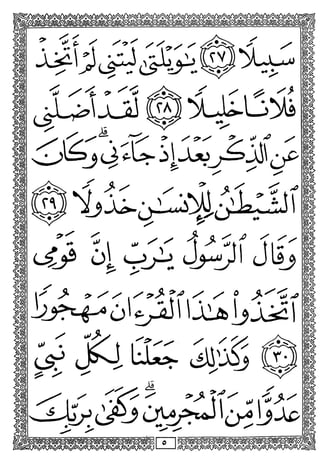 سَبِيلًا ٢٧ يَٰوَيْلَتَىٰ لَيْتَنِى لَمْ أَتَّخِذْ
فُلَانًا خَلِيلًا ٢٨ لَّقَدْ أَضَلَّنِى
عَنِ ٱلذِّكْرِ بَعْدَ إِذْ جَآءَنِى ۗ وَكَانَ
ٱلشَّيْطَٰنُ لِلْإِنسَٰنِ خَذُولًا ٢٩
وَقَالَ ٱلرَّسُولُ يَٰرَبِّ إِنَّ قَوْمِى
ٱتَّخَذُوا۟ هَٰذَا ٱلْقُرْءَانَ مَهْجُورًا
٣٠ وَكَذَٰلِكَ جَعَلْنَا لِكُلِّ نَبِىٍّ
عَدُوًّا مِّنَ ٱلْمُجْرِمِينَ ۗ وَكَفَىٰ بِرَبِّكَ
٥